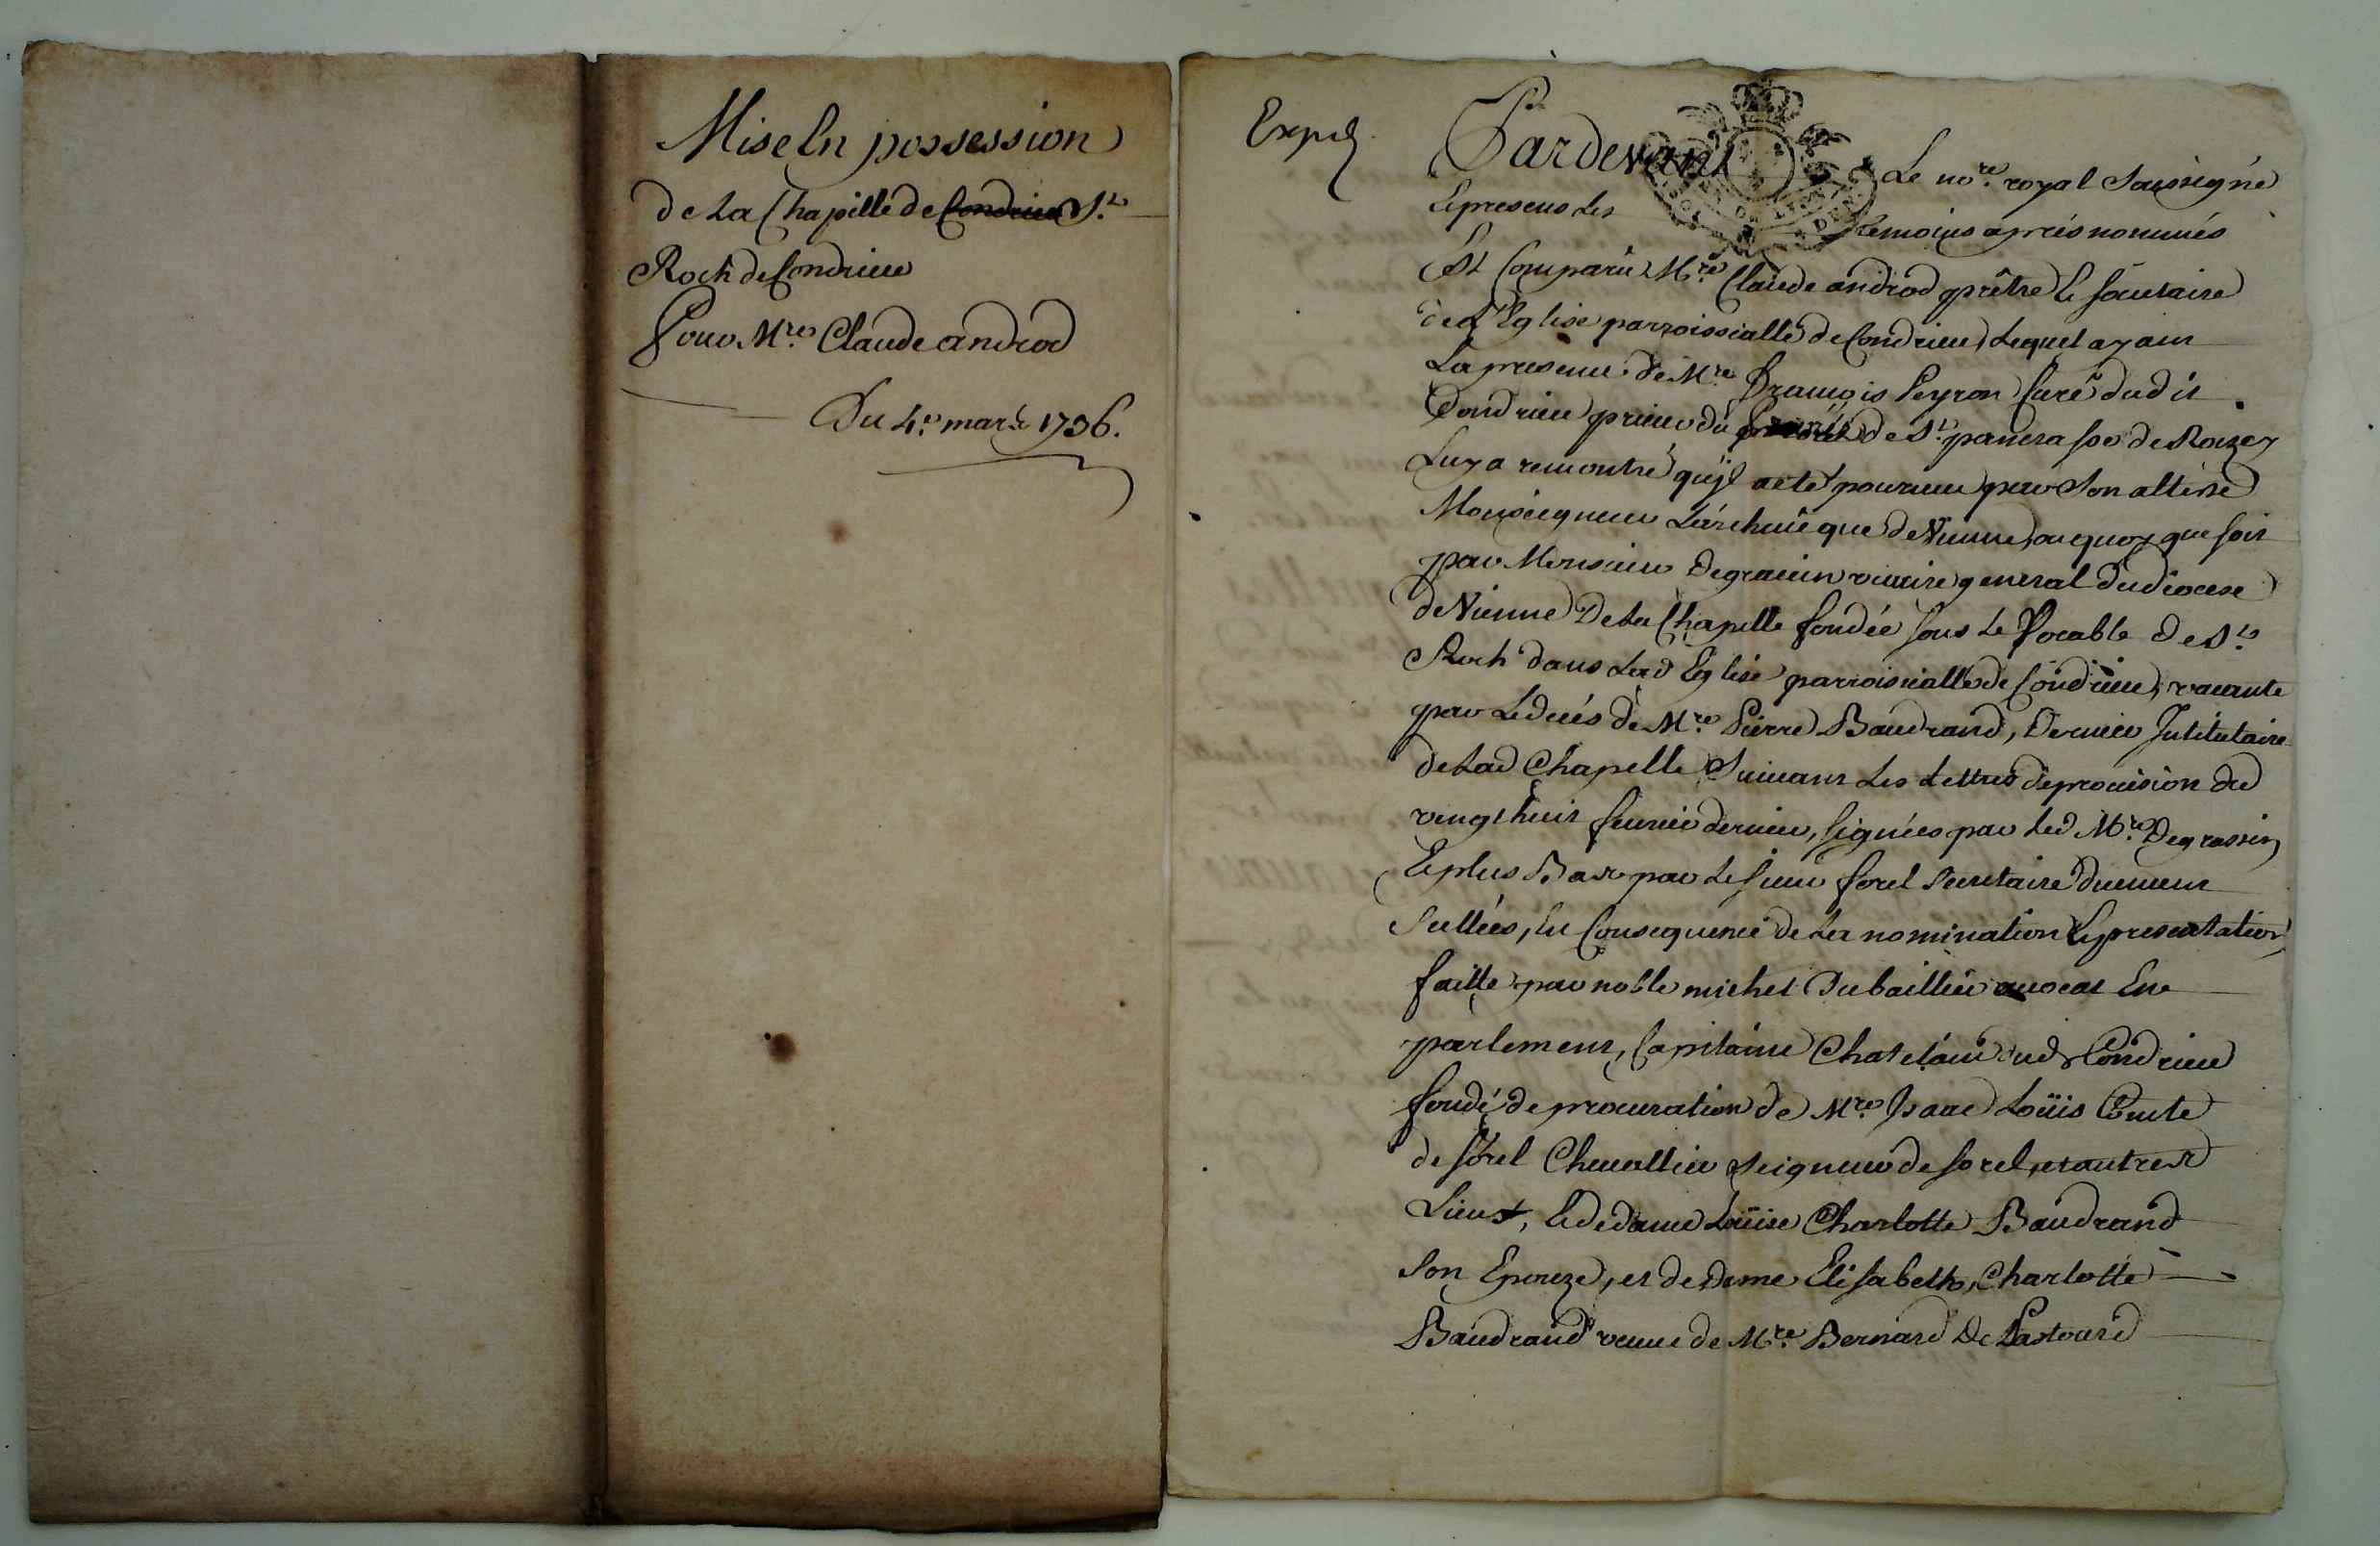 Mise En possession
de La Chapelle de Condrieu St
Roch de Condrieu
Pour Mre Claude androd
Du 4e mars 1736.
Expé
Pardevant Le nore royal soussigné
Et presens Les temoins aprés nommés
Est Comparu Mre Claude androd prêtre Et socutaire
de L'Eglise parroissialle de Condrieu, Lequel ayant
La presence de Mre François Peyron Curé dudit
Condrieu prieur du prieuré de St pancrasse de Roizey
Luy a remontré qu'il a eté pourueu par Son altesse
Monseigneur L'archeuêque de Vienne, ou quoy que soit
par Monsieur Degrassin vicaire general du diocese
de Vienne De La Chapelle fondée sous Le Vocable de St
Roch dans Lad Eglise parroissialle de Condrieu, vacante
par Le decés de Mre Pierre Baudrand, Dernier Intitutaire
de Lad Chapelle Suiuant Les Lettres de prouision du
vingt huit feurier dernier, signées par Led Mre Degrassin
Et plus Bas par Le sieur sorel Secretaire duement
Sellées, En Consequence de La nomination Et presentation
faitte par noble michel Dubaillier auocat En
parlement, Capitaine Chatelain dud Condrieu
fondé de procuration de Mre Isaac Loüis Comte
de Sorel Cheuallier Seigneur de sorel, et autres
Lieux, Et de dame Loüise Charlotte Baudrand
Son Epouze, et de Dame Elisabeth, Charlotte
Baudrand veuue de Mre Bernard De Pastourd